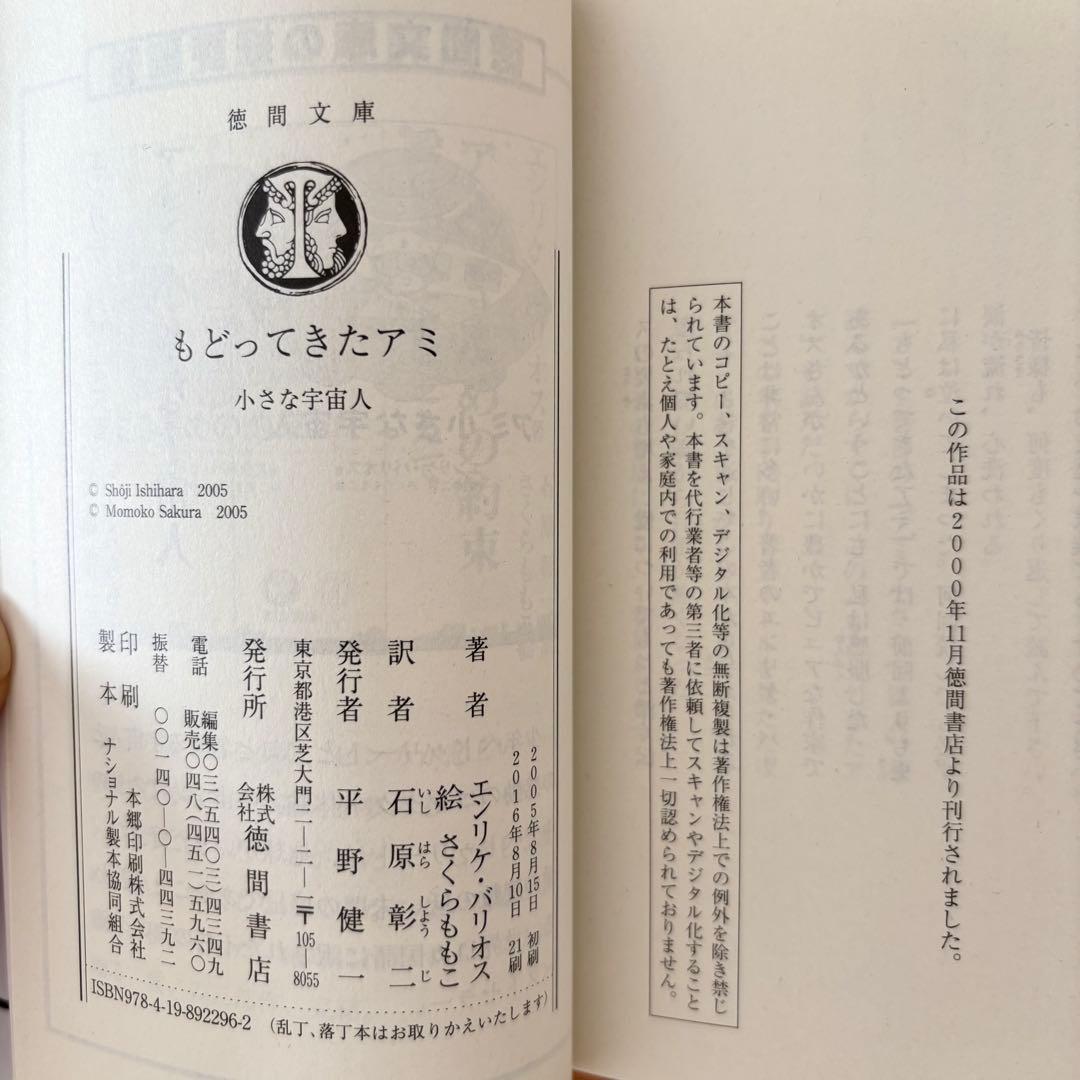 この作品は2000年11月徳間書店より刊行されました。
本書のコピー、スキャン、デジタル化等の無断複製は著作権法上での例外を除き禁じ
られています。本書を代行業者等の第三者に依頼してスキャンやデジタル化すること
は、たとえ個人や家庭内での利用であっても著作権法上一切認められておりません。
徳間文庫
もどってきたアミ
小さな宇宙人
© Shôji Ishihara 2005
© Momoko Sakura 2005
2005年8月15日 初刷
2016年8月10日 21刷
著者 エンリケ・バリオス
絵 さくらももこ
訳者 石原彰二
いし はら しよう じ
発行者 平野健一
東京都港区芝大門二―二―一〒105―8055
発行所 株式会社徳間書店
電話 編集〇三(五四〇三)四三四九
販売〇四八(四五一)五九六〇
振替 〇〇一四〇―〇―四四三九二
印刷 本郷印刷株式会社
製本 ナショナル製本協同組合
ISBN978-4-19-892296-2 (乱丁、落丁本はお取りかえいたします)